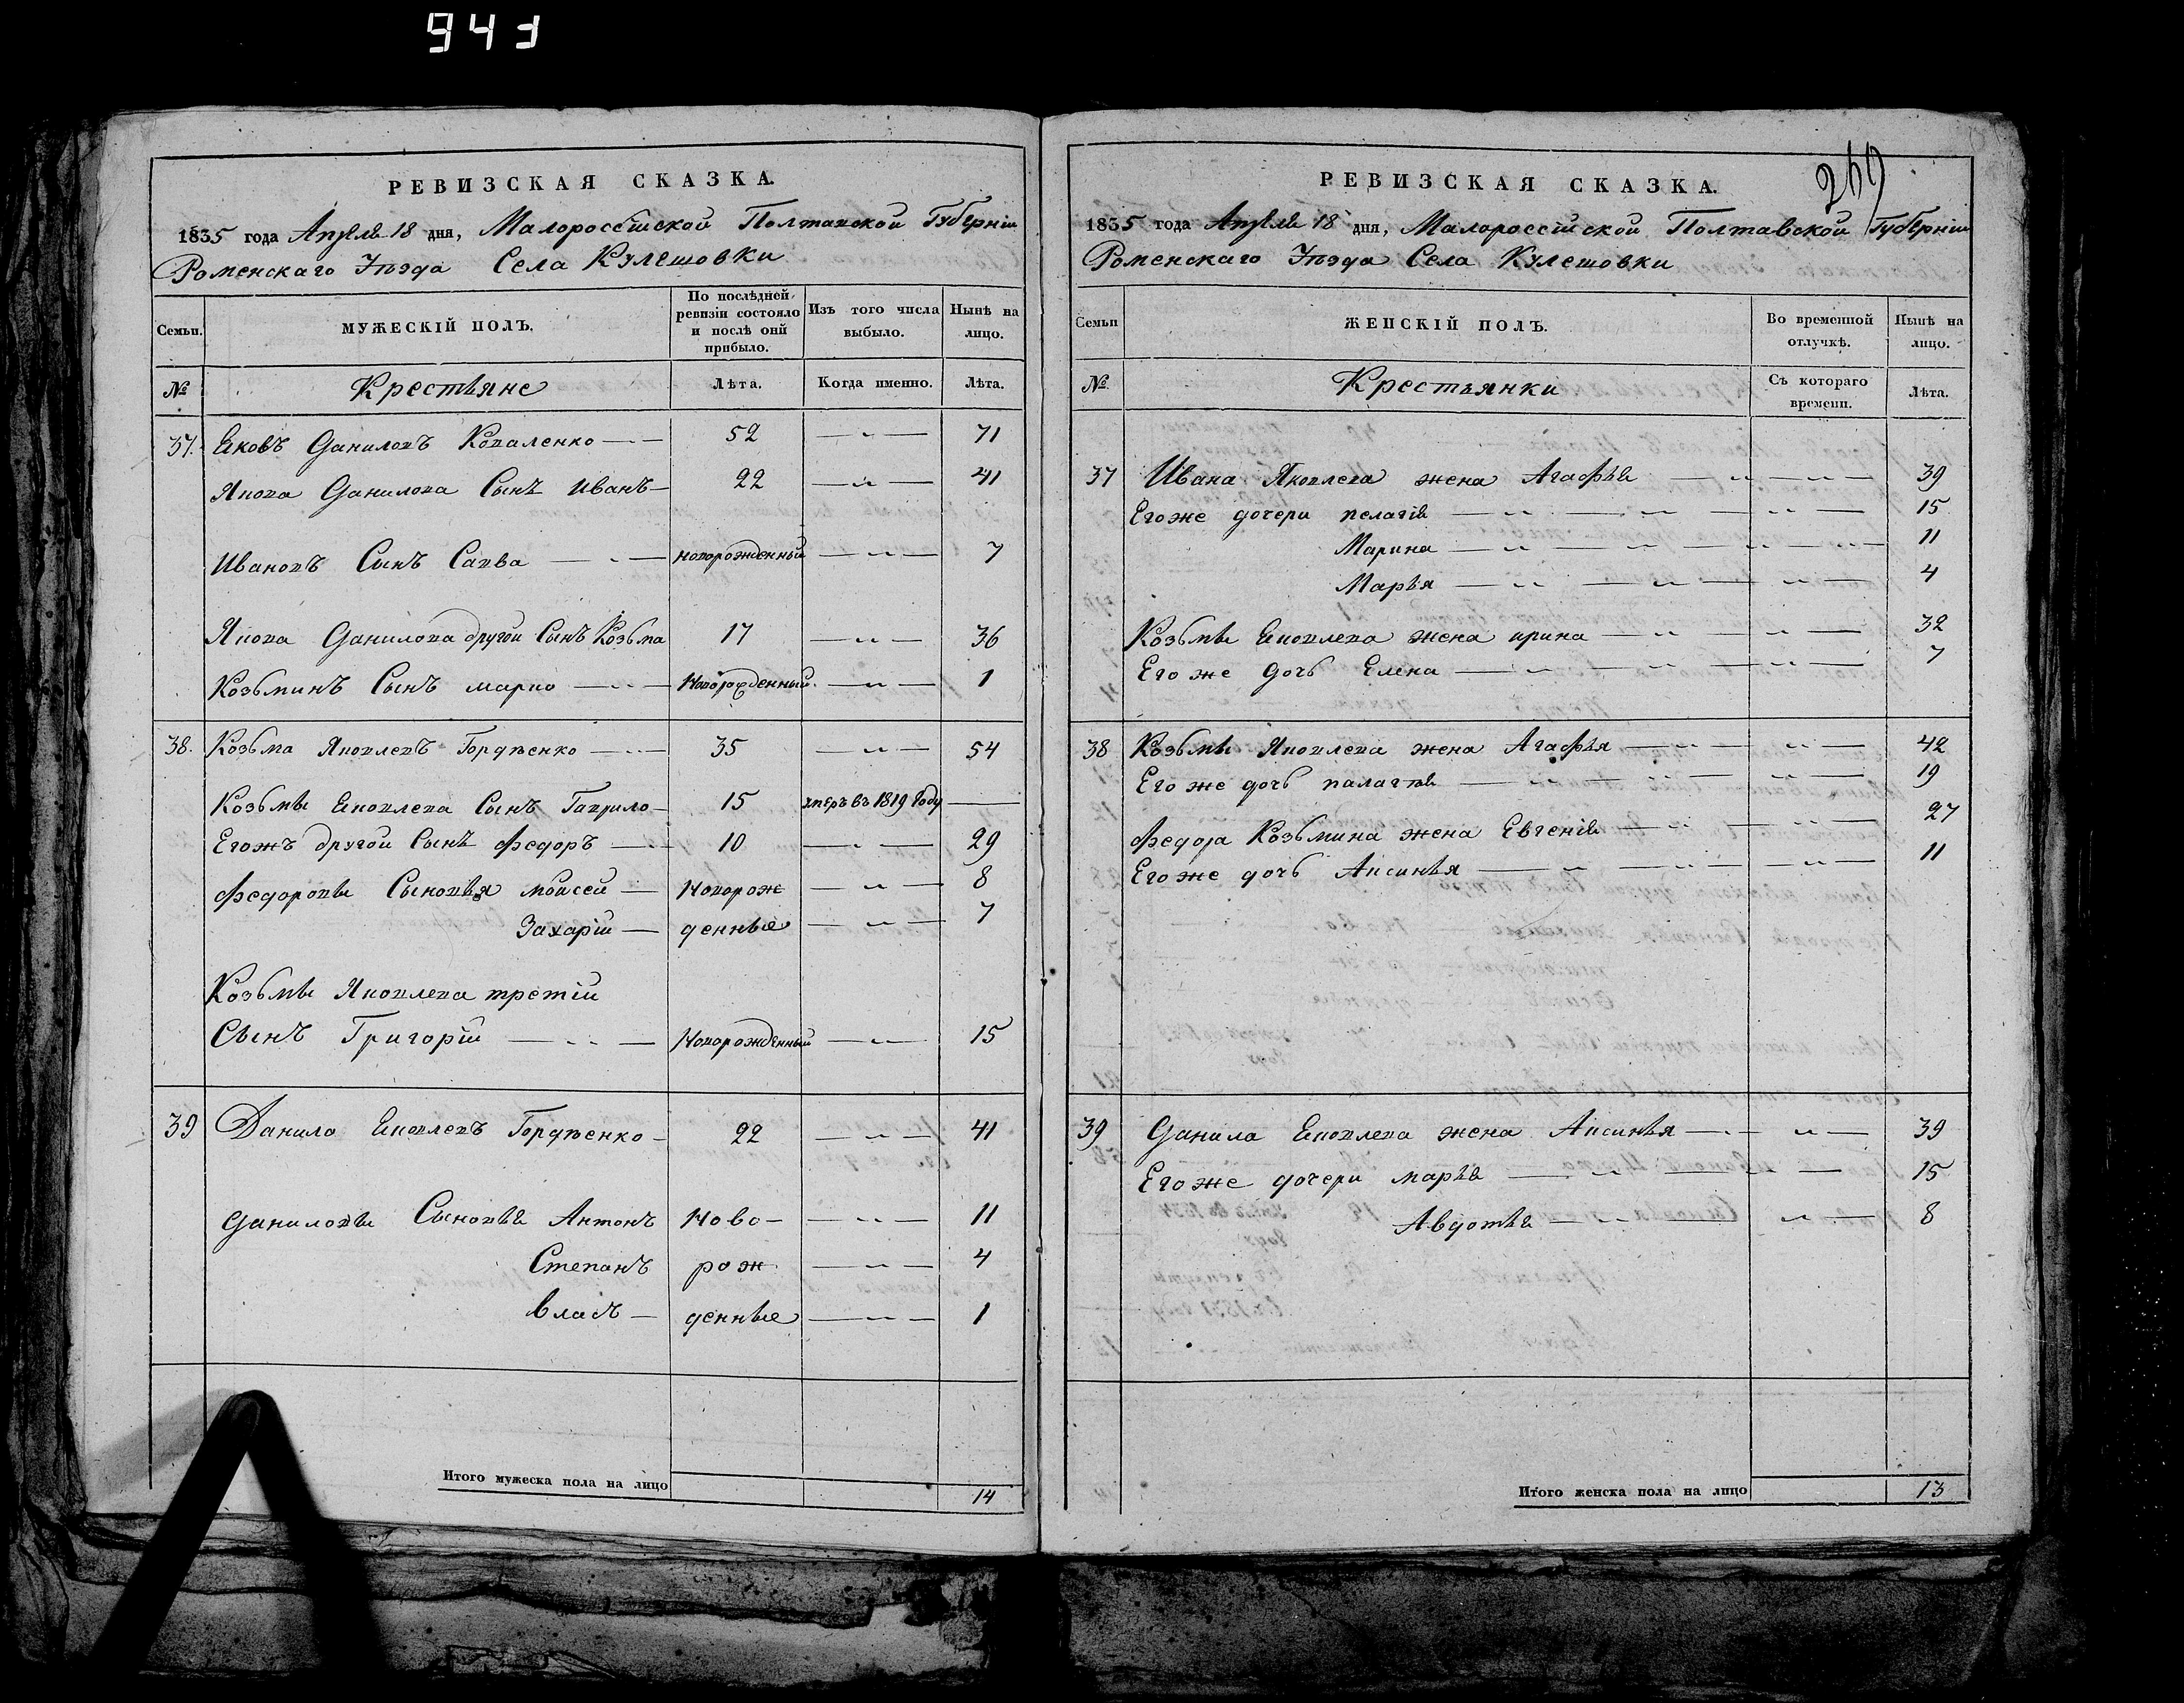 943
РЕВИЗСКАЯ СКАЗКА.
1835 года Апреля 18 дня, Малороссійской Полтавской Губерніи
Роменскаго Уѣзда Села Кулешовки
Семьи.
МУЖЕСКІЙ ПОЛЪ.
По послѣдней ревизіи состояло и послѣ оній прибыло.
Изъ того числа выбыло.
Нынѣ на лицо.
№
Крестьяне
Лѣта.
Когда именно.
Лѣта.
37. Яковъ Даниловъ Коваленко — 52 — 71
Якова Данилова Сынъ Иванъ — 22 — 41
Ивановъ Сынъ Савва — новорожденный — 7
Якова Данилова другой Сынъ Козьма 17 — 36
Козьминъ Сынъ марко — Новорожденный — 1
38. Козьма Яковлевъ Гордѣенко — 35 — 54
Козьмы Яковлева Сынъ Гаврило — 15 умеръ въ 1819 Году —
Егожъ другой Сынъ Федоръ — 10 — 29
Федоровы Сыновья мойсей — Новорож — 8
Захарій — денные — 7
Козьмы Яковлева третій
Сынъ Григорій — Новорожденный — 15
39 Данило Яковлевъ Гордѣенко — 22 — 41
Даниловы Сыновья Антонъ Ново — 11
Степанъ рож — 4
Власъ — денные — 1
Итого мужеска пола на лицо
14
269
РЕВИЗСКАЯ СКАЗКА.
1835 года Апреля 18 дня, Малороссійской Полтавской Губерніи
Роменскаго Уѣзда Села Кулешовки
Семьи
ЖЕНСКІЙ ПОЛЪ.
Во временной отлучкѣ.
Нынѣ на лицо.
№.
Крестьянки
Съ котораго времени.
Лѣта.
37 Ивана Яковлева жена Агафья — 39
Егоже дочери пелагія — 15
Марина — 11
Марья — 4
Козьмы Яковлева жена ирина — 32
Его же Дочь Елена — 7
38 Козьмы Яковлева жена Агафья — 42
Его же дочь палагѣя — 19
Федора Козьмина жена Евгенія — 27
Его же дочь Аксинья — 11
39 Данила Яковлева жена Аксинья — 39
Его же дочери марья — 15
Авдотья — 8
Итого женска пола на лицо
13